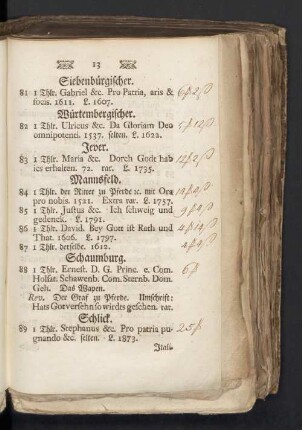 13
Siebenbürgischer.
81 1 Thlr. Gabriel &c. Pro Patria, aris &
focis. 1611. L. 1607.
Würtembergischer.
82 1 Thlr. Ulricus &c. Da Gloriam Deo
omnipotenti. 1537. selten. L. 1622.
Jever.
83 1 Thlr. Maria &c. Dorch Godt hab
ics erhalren. 72. rar. L. 1735.
Mannsfeld.
84 1 Thlr. der Ritter zu Pferde ꝛc. mit Ora
pro nobis. 1521. Extra rar L. 1757.
85 1 Thlr. Justus &c. Ich schweig und
gedenck. L. 1791.
86 1 Thlr. David. Bey Gott ist Rath und
That. 1606. L. 1797.
87 1 Thlr. derselbe. 1612.
Schaumburg.
88 1 Thlr. Ernest. D. G. Princ. e. Com.
Holsat. Schawenb. Com. Sternb. Dom.
Geh. Das Wapen.
Rev. Der Graf zu Pferde. Umschrift:
Hats Gotversehn so wirdts geschen. rar.
Schlick.
89 1 Thlr. Stephanus &c. Pro patria pu-
gnando &c. selten. L. 1873.
Itali-